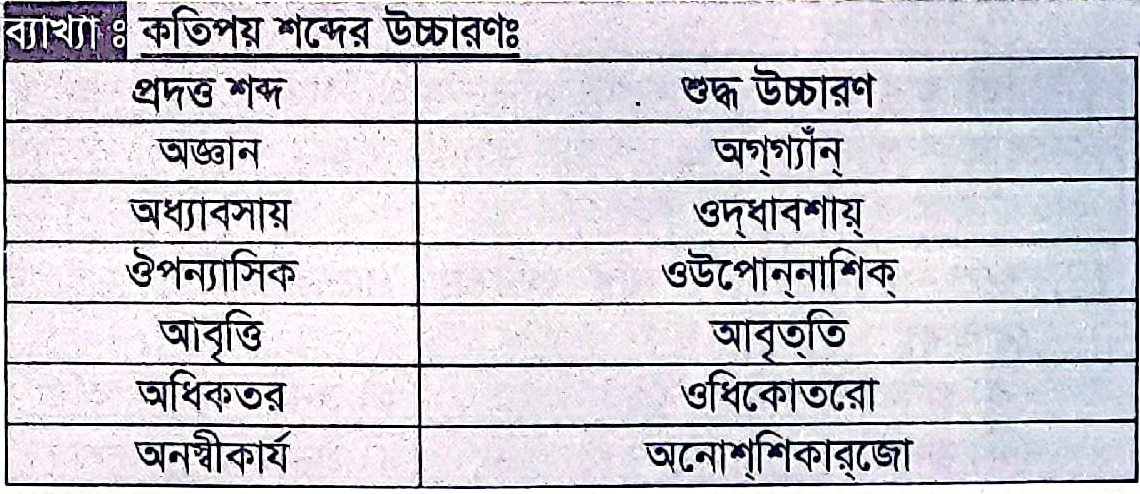 ব্যাখ্যা ঃ কতিপয় শব্দের উচ্চারণঃ
প্রদত্ত শব্দ শুদ্ধ উচ্চারণ
অজ্ঞান অগ্‌গ্যাঁন্
অধ্যাবসায় ওদ্‌ধাবশায়্
ঔপন্যাসিক ওউপোন্‌নাশিক্
আবৃত্তি আবৃত্‌তি
অধিকতর ওধিকোতরো
অনস্বীকার্য অনোশ্‌শিকার্‌জো